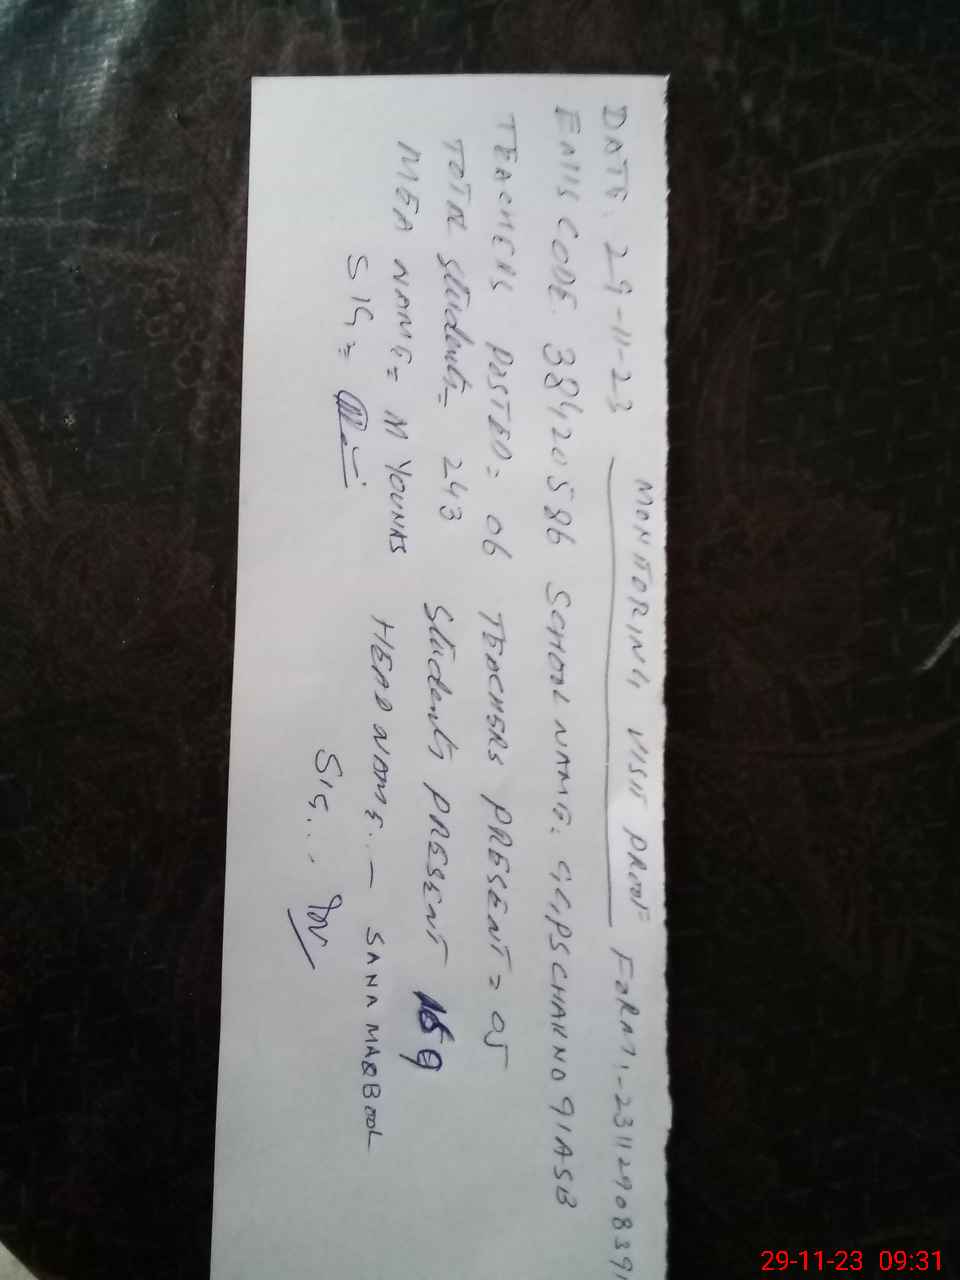 MONITORING VISIT PROOF
DATE: 29-11-23 FORM:-2311290839
EMIS CODE. 38420586 SCHOOL NAME. GGPS CHAK NO 91ASB
TEACHERS POSTED= 06 TEACHERS PRESENT= 05
TOTAL Students= 243 Students PRESENT 159
MEA NAME= M YOUNAS HEAD NAME..- SANA MAQBOOL
SIG= SIG...
29-11-23 09:31